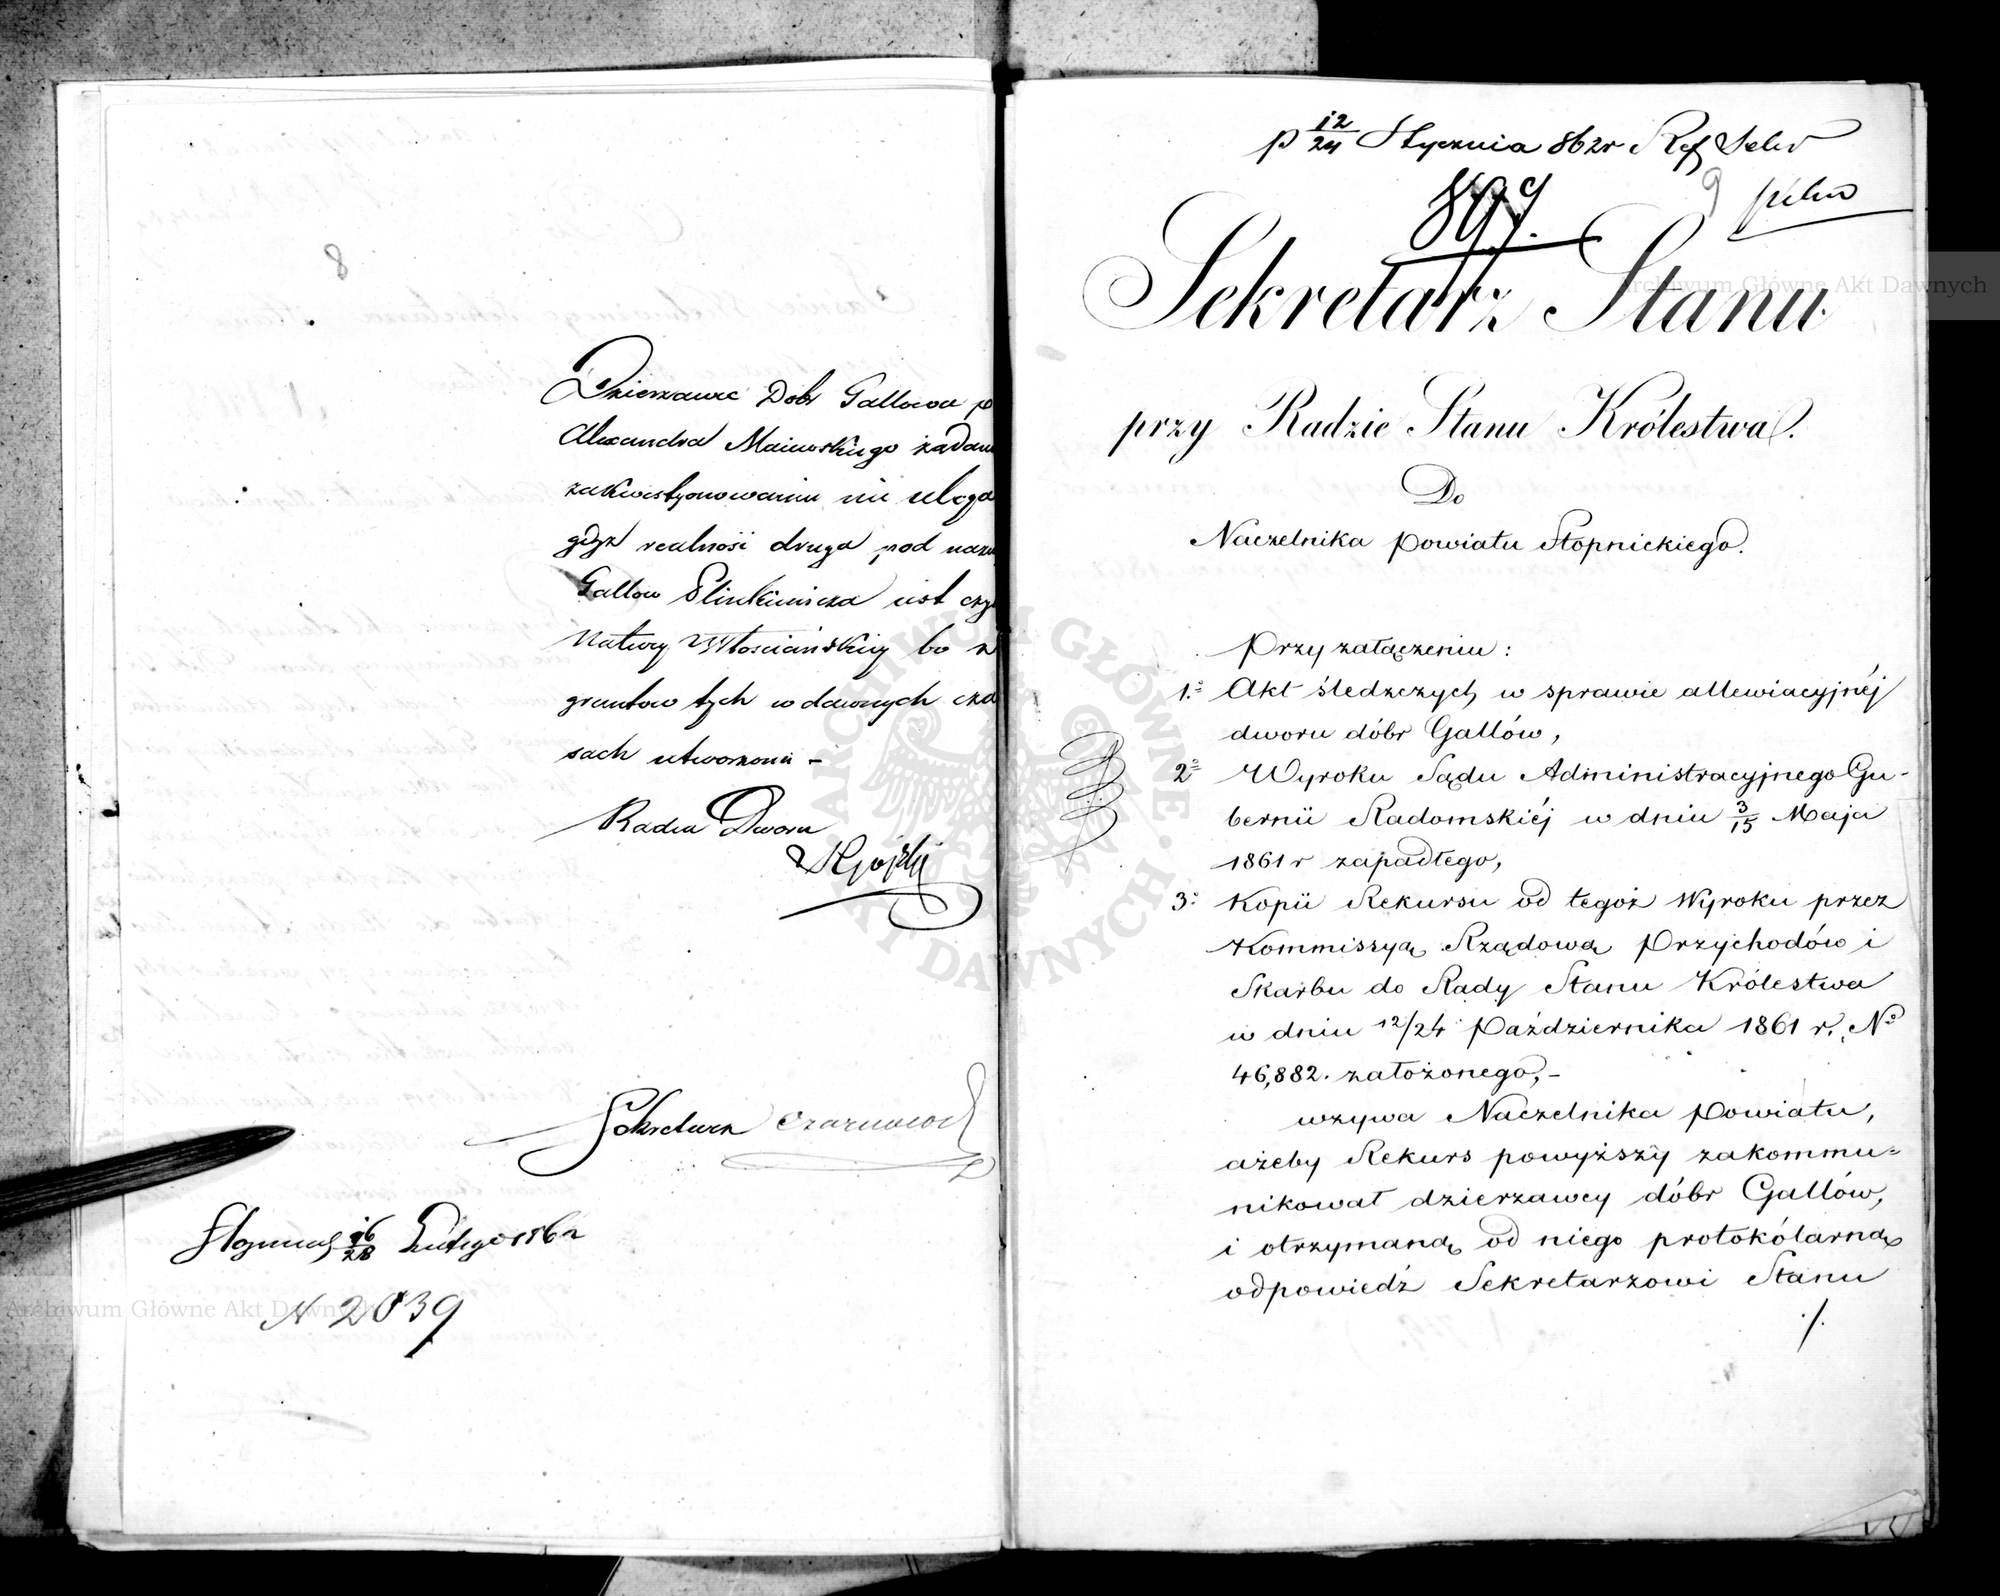 8
Dzierżawce Dobr Gallowa p
Alexandra Mainoskiego żadan
zakwestyonowaniu nie ulega
gdyż realność druga pod nazw
Gallow jest czy
Natury Włościańskiej bo z
gruntow tych w dawnych cza
sach utworzona -
Radca Dworu
Sekretarz
Stopnica 16/28 Lutego 1862
N 2039
p 12/24 Stycznia 862r Ref
897.
9
Sekretarz Stanu.
przy Radzie Stanu Królestwa.
Do
Naczelnika Powiatu Stopnickiego.
Przy załączeniu:
1.º Akt śledzczych w sprawie allewiacyjnéj
dworu dóbr Gallów,
2º Wyroku Sądu Administracyjnego Gu-
bernii Radomskiéj w dniu 3/15 Maja
1861 r zapadłego,
3º Kopii Rekursu od tegoż Wyroku przez
Kommissyą Rządową Przychodów i
Skarbu do Rady Stanu Królestwa
w dniu 12/24 Października 1861 r. Nº
46,882. założonego, -
wzywa Naczelnika Powiatu,
ażeby Rekurs powyższy zakommu=
nikował dzierzawcy dóbr Gallów,
i otrzymaną od niego protokólarną
odpowiedź Sekretarzowi Stanu
./.
ARCHIWUM GŁÓWNE AKT DAWNYCH
Archiwum Główne Akt Dawnych
Archiwum Główne Akt Dawnych